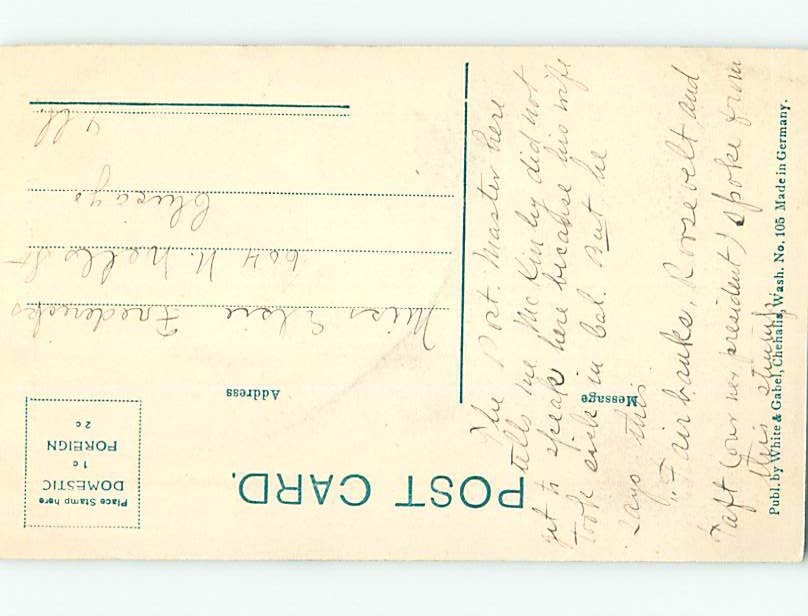 POST CARD.
Place Stamp here
DOMESTIC
1c
FOREIGN
2c
Message
Address
The Post. Master here
tells me McKinly did not
get to speak here because his wife
took sick in Cal. But he
says this.
"Fairbanks, Roosevelt and
Taft (our new president) spoke from
this stump
Miss Elsie Fredericks
604 N. St
Chicago
Ill
Publ. by White & Gabel, Chehalis, Wash. No. 105 Made in Germany.